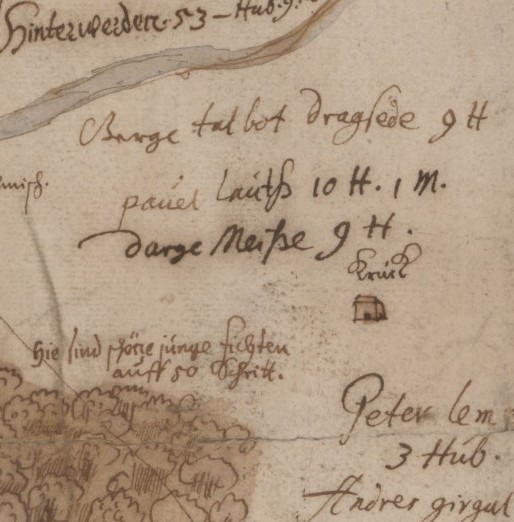 Hinterwerder. 53 - Hub. 9.
Berge talbot dragsede 9 H
misch.
pauel Lautß 10 H. 1 M.
darge Meiße 9 H.
Kruck
hie sind junge fichten
auff 50 Schritt.
Peter lem
3 Hub.
Andres girgul